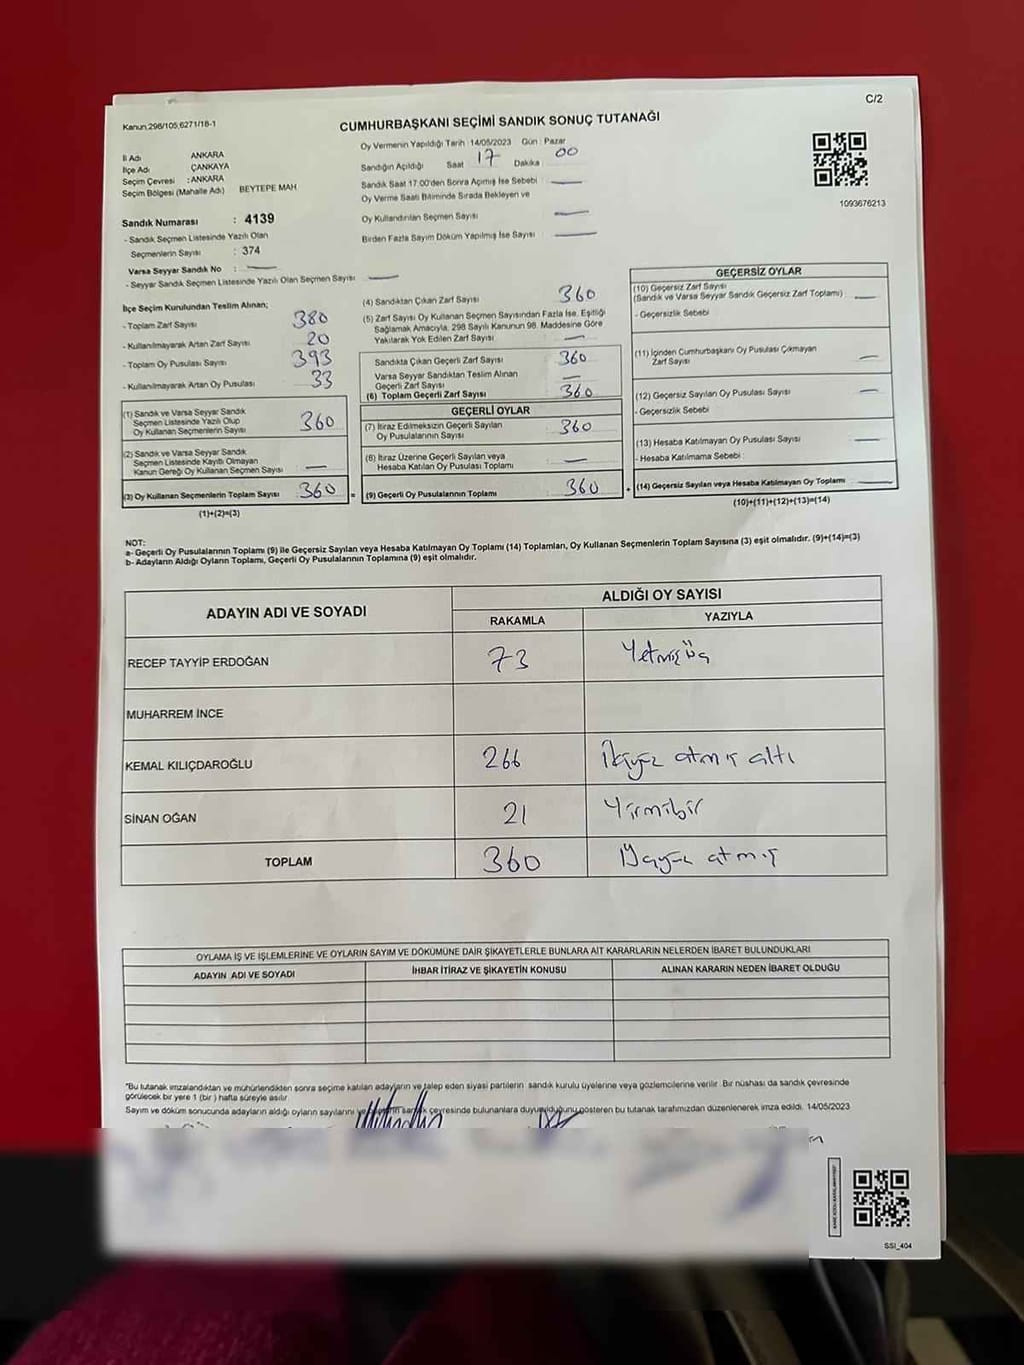 C/2
Kanun:298/105;6271/18-1
CUMHURBAŞKANI SEÇİMİ SANDIK SONUÇ TUTANAĞI
İl Adı ANKARA
İlçe Adı ÇANKAYA
Seçim Çevresi : ANKARA
Seçim Bölgesi (Mahalle Adı) BEYTEPE MAH
Oy Vermenin Yapıldığı Tarih 14/05/2023 Gün : Pazar
Sandığın Açıldığı Saat 17 Dakika 00
Sandık Saat 17:00'den Sonra Açımış İse Sebebi
Oy Verme Saati Bitiminde Sırada Bekleyen ve
Oy Kullandırılan Seçmen Sayısı
Birden Fazla Sayım Döküm Yapılmış İse Sayısı
1093676213
Sandık Numarası : 4139
- Sandık Seçmen Listesinde Yazılı Olan
Seçmenlerin Sayısı : 374
Varsa Seyyar Sandık No :
- Seyyar Sandık Seçmen Listesinde Yazılı Olan Seçmen Sayısı
İlçe Seçim Kurulundan Teslim Alınan;
- Toplam Zarf Sayısı 380
- Kullanılmayarak Artan Zarf Sayısı 20
- Toplam Oy Pusulası Sayısı 393
- Kullanılmayarak Artan Oy Pusulası 33
(1) Sandık ve Varsa Seyyar Sandık
Seçmen Listesinde Yazılı Olup
Oy Kullanan Seçmenlerin Sayısı 360
(2) Sandık ve Varsa Seyyar Sandık
Seçmen Listesinde Kayıtlı Olmayan
Kanun Gereği Oy Kullanan Seçmen Sayısı
(3) Oy Kullanan Seçmenlerin Toplam Sayısı 360 =
(1)+(2)=(3)
(4) Sandıktan Çıkan Zarf Sayısı 360
(5) Zarf Sayısı Oy Kullanan Seçmen Sayısından Fazla İse, Eşitliği
Sağlamak Amacıyla, 298 Sayılı Kanunun 98. Maddesine Göre
Yakılarak Yok Edilen Zarf Sayısı
Sandıkta Çıkan Geçerli Zarf Sayısı 360
Varsa Seyyar Sandıktan Teslim Alınan
Geçerli Zarf Sayısı
(6) Toplam Geçerli Zarf Sayısı 360
GEÇERLİ OYLAR
(7) İtiraz Edilmeksizin Geçerli Sayılan
Oy Pusulalarının Sayısı 360
(8) İtiraz Üzerine Geçerli Sayılan veya
Hesaba Katılan Oy Pusulası Toplamı
(9) Geçerli Oy Pusulalarının Toplamı 360 +
GEÇERSİZ OYLAR
(10) Geçersiz Zarf Sayısı
(Sandık ve Varsa Seyyar Sandık Geçersiz Zarf Toplamı)
- Geçersizlik Sebebi
(11) İçinden Cumhurbaşkanı Oy Pusulası Çıkmayan
Zarf Sayısı
(12) Geçersiz Sayılan Oy Pusulası Sayısı
- Geçersizlik Sebebi
(13) Hesaba Katılmayan Oy Pusulası Sayısı
- Hesaba Katılmama Sebebi :
(14) Geçersiz Sayılan veya Hesaba Katılmayan Oy Toplamı
(10)+(11)+(12)+(13)=(14)
NOT:
a- Geçerli Oy Pusulalarının Toplamı (9) ile Geçersiz Sayılan veya Hesaba Katılmayan Oy Toplamı (14) Toplamları, Oy Kullanan Seçmenlerin Toplam Sayısına (3) eşit olmalıdır. (9)+(14)=(3)
b- Adayların Aldığı Oyların Toplamı, Geçerli Oy Pusulalarının Toplamına (9) eşit olmalıdır.
ADAYIN ADI VE SOYADI
ALDIĞI OY SAYISI
RAKAMLA YAZIYLA
RECEP TAYYİP ERDOĞAN 73 Yetmişüç
MUHARREM İNCE
KEMAL KILIÇDAROĞLU 266 İkiyüz atmış altı
SİNAN OĞAN 21 Yirmibir
TOPLAM 360 Üçyüz atmış
OYLAMA İŞ VE İŞLEMLERİNE VE OYLARIN SAYIM VE DÖKÜMÜNE DAİR ŞİKAYETLERLE BUNLARA AİT KARARLARIN NELERDEN İBARET BULUNDUKLARI
ADAYIN ADI VE SOYADI İHBAR İTİRAZ VE ŞİKAYETİN KONUSU ALINAN KARARIN NEDEN İBARET OLDUĞU
"Bu tutanak imzalandıktan ve mühürlendikten sonra seçime katılan adayların ve talep eden siyasi partilerin sandık kurulu üyelerine veya gözlemcilerine verilir. Bir nüshası da sandık çevresinde
görülecek bir yere 1 (bir) hafta süreyle asılır.
Sayım ve döküm sonucunda adayların aldığı oyların sayılarını sandık çevresinde bulunanlara duyurulduğunu gösteren bu tutanak tarafımızdan düzenlenerek imza edildi. 14/05/2023
SSI_404